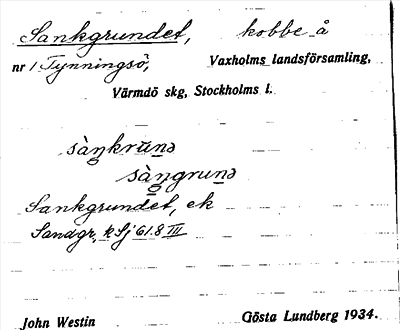 Sankgrundet, kobbe å
nr 1 Tynningsö, Vaxholms landsförsamling,
Värmdö skg, Stockholms l.
sàŋkrūnə
sàŋgrunə
Sankgrundet, ek
Sandgr, k Sj 61.8 III
John Westin Gösta Lundberg 1934.